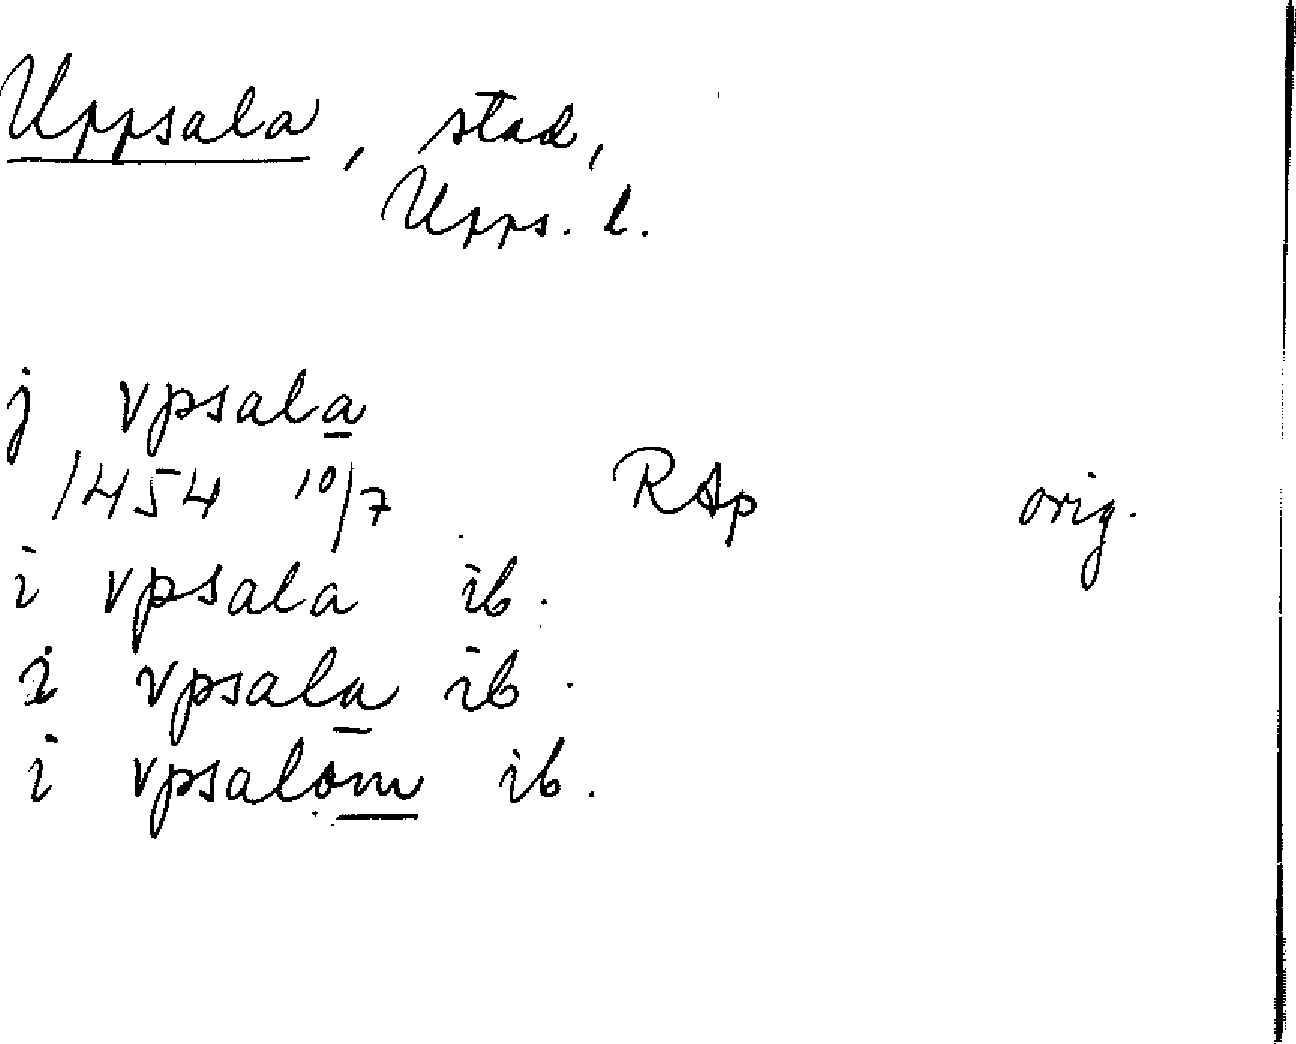 Uppsala, stad,
Upps. l.
j vpsala
1454 10/7 RAp orig.
i vpsala ib.
i vpsala ib.
i vpsalom ib.